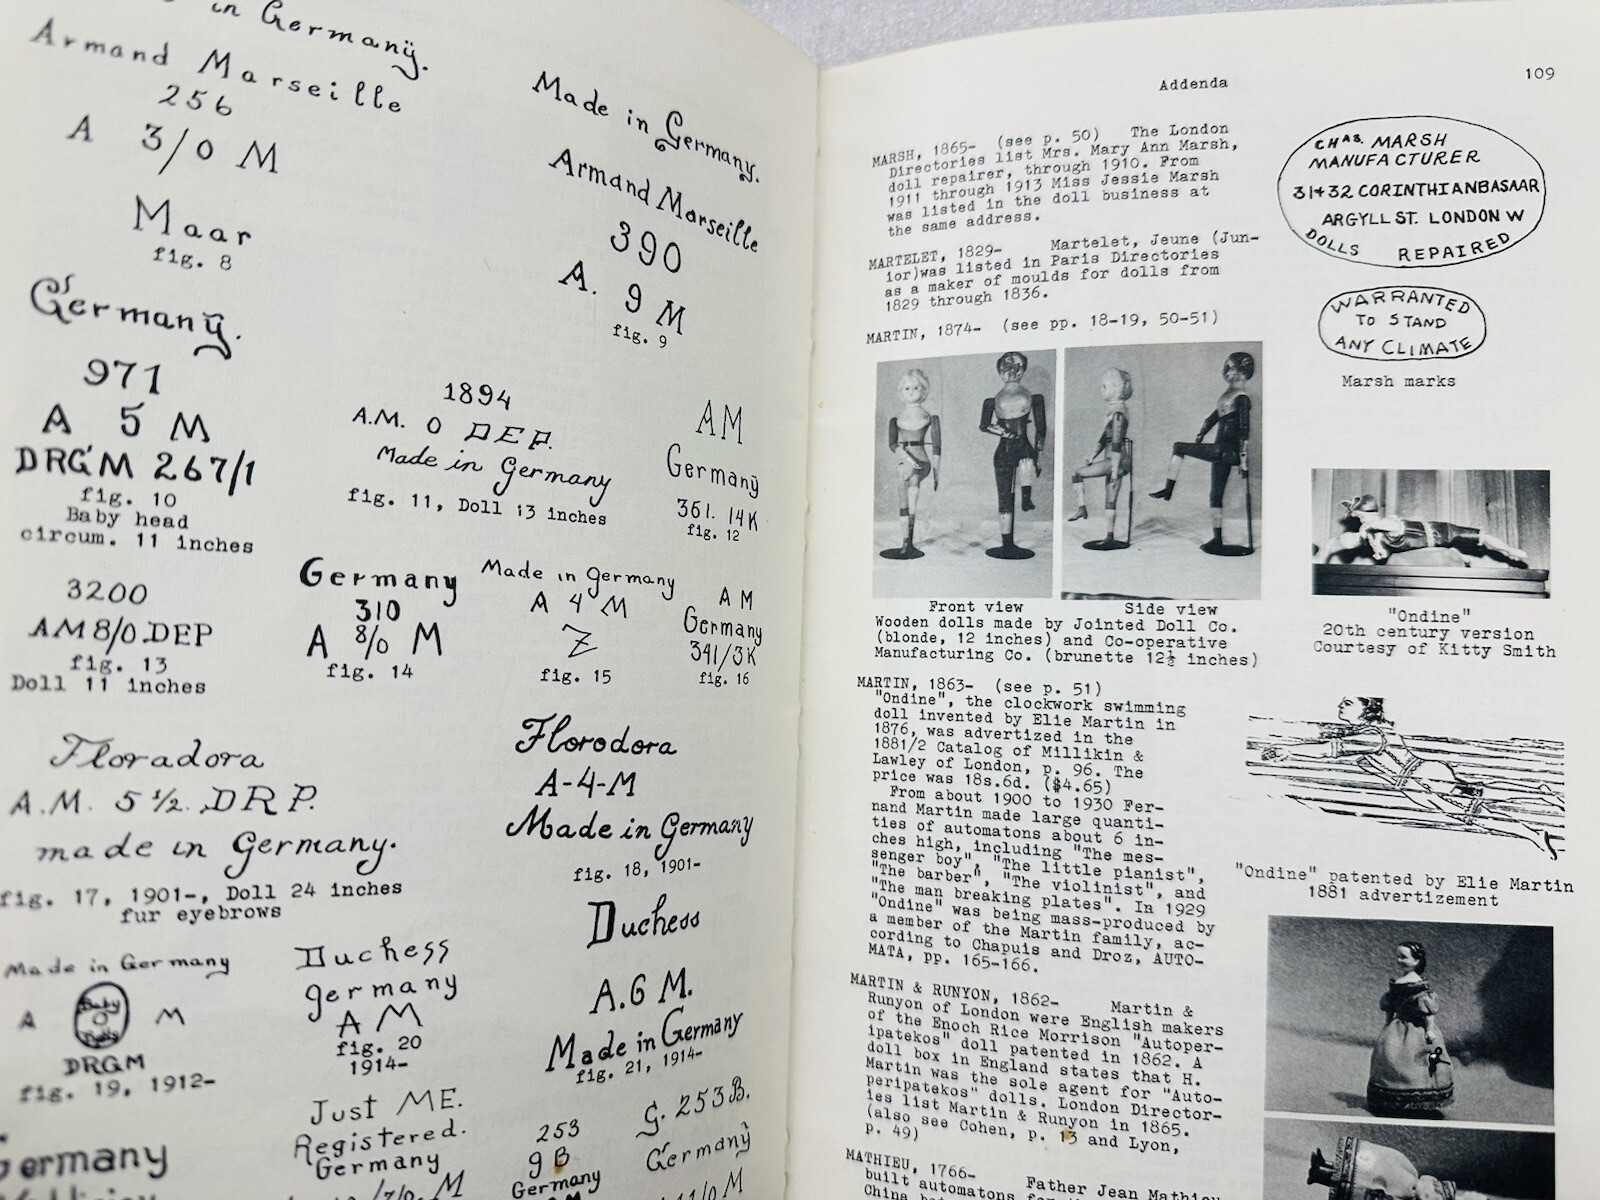 in Germany.
Armand Marseille
256
A 3/0 M
Maar
fig. 8
Made in Germany.
Armand Marseille
390
A. 9 M
fig. 9
Germany.
971
A 5 M
DRGM 267/1
fig. 10
Baby head
circum. 11 inches
1894
A.M. 0 DEP.
Made in Germany
fig. 11, Doll 13 inches
AM
Germany
351. 14K
fig. 12
3200
AM 8/0 DEP
fig. 13
Doll 11 inches
Germany
310
A 8/0 M
fig. 14
Made in Germany
A 4 M
Z
fig. 15
A M
Germany
341/3K
fig. 16
Floradora
A.M. 5 1/2. DRP.
made in Germany.
fig. 17, 1901-, Doll 24 inches
fur eyebrows
Florodora
A-4-M
Made in Germany
fig. 18, 1901-
Made in Germany
A Baby O M
DRGM
fig. 19, 1912-
Duchess
germany
A M
fig. 20
1914-
Duchess
A.6 M.
Made in Germany
fig. 21, 1914-
Germany
Just ME.
Registered.
Germany
253
9 B
Germany
G. 253 B.
Germany
Addenda
109
MARSH, 1865- (see p. 50) The London
Directories list Mrs. Mary Ann Marsh,
doll repairer, through 1910. From
1911 through 1913 Miss Jessie Marsh
was listed in the doll business at
the same address.
MARTELET, 1829- Martelet, Jeune (Jun-
ior)was listed in Paris Directories
as a maker of moulds for dolls from
1829 through 1836.
MARTIN, 1874- (see pp. 18-19, 50-51)
Front view Side view
Wooden dolls made by Jointed Doll Co.
(blonde, 12 inches) and Co-operative
Manufacturing Co. (brunette 12½ inches)
MARTIN, 1863- (see p. 51)
"Ondine", the clockwork swimming
doll invented by Elie Martin in
1876, was advertized in the
1881/2 Catalog of Millikin &
Lawley of London, p. 96. The
price was 18s.6d. ($4.65)
From about 1900 to 1930 Fer-
nand Martin made large quanti-
ties of automatons about 6 in-
ches high, including "The mes-
senger boy", "The little pianist",
"The barber", "The violinist", and
"The man breaking plates". In 1929
"Ondine" was being mass-produced by
a member of the Martin family, ac-
cording to Chapuis and Droz, AUTO-
MATA, pp. 165-166.
MARTIN & RUNYON, 1862- Martin &
Runyon of London were English makers
of the Enoch Rice Morrison "Autoper-
ipatekos" doll patented in 1862. A
doll box in England states that H.
Martin was the sole agent for "Auto-
peripatekos" dolls. London Director-
ies list Martin & Runyon in 1865.
(also see Cohen, p. 13 and Lyon,
p. 49)
MATHIEU, 1766- Father Jean Mathieu
built automatons for
China
CHAS. MARSH
MANUFACTURER
31+32 CORINTHIAN BASAAR
ARGYLL ST. LONDON W
DOLLS REPAIRED
WARRANTED
TO STAND
ANY CLIMATE
Marsh marks
"Ondine"
20th century version
Courtesy of Kitty Smith
"Ondine" patented by Elie Martin
1881 advertizement